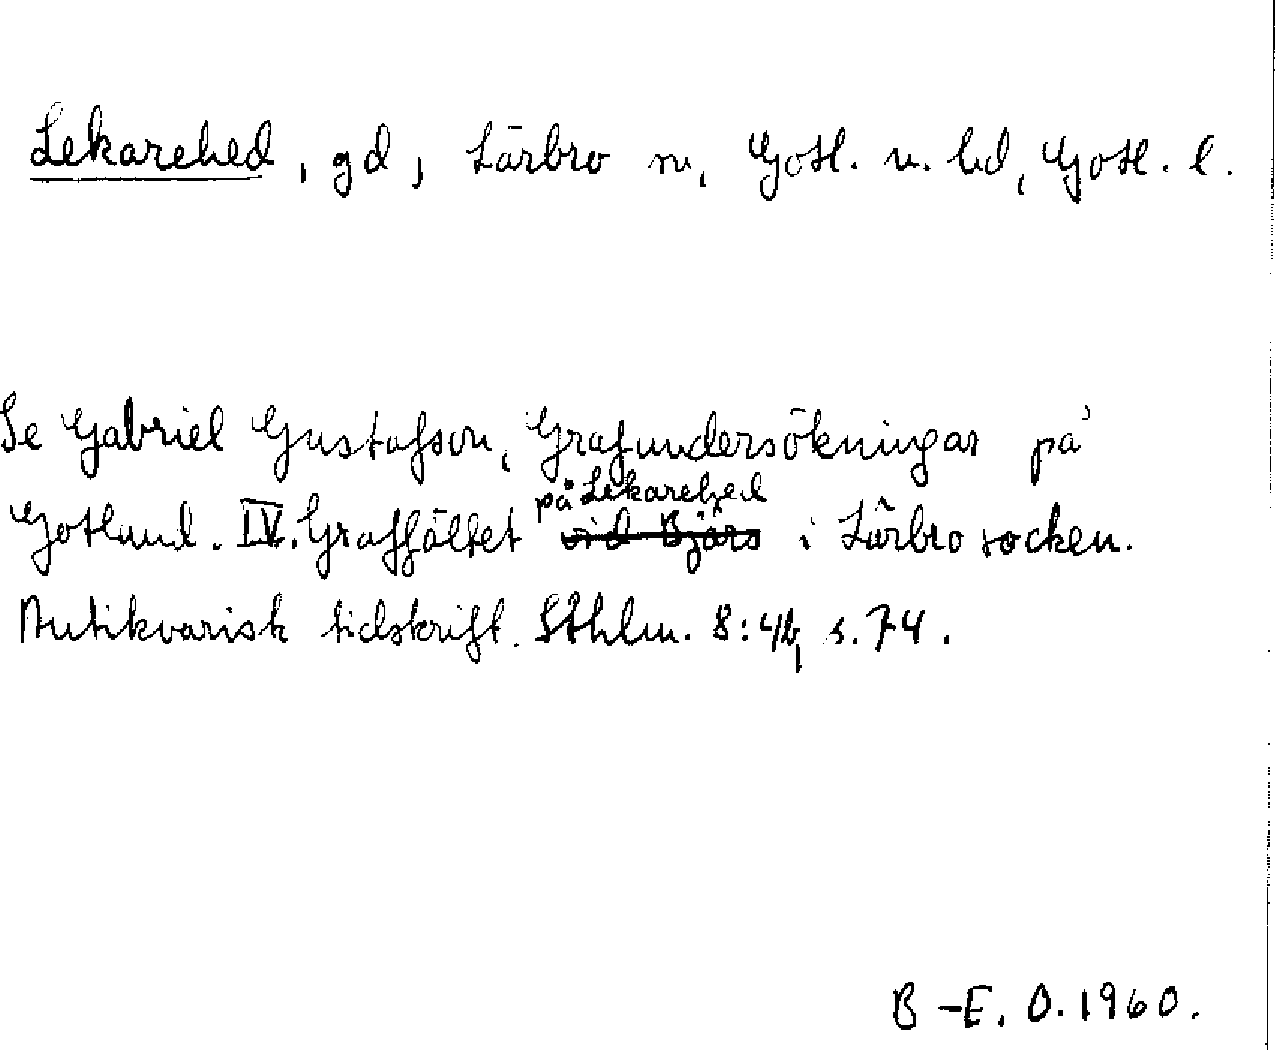 Lekarehed, gd, Lärbro sn, Gotl. n. hd, Gotl. l.
Se Gabriel Gustafson, Grafundersökningar på
på Lekarehed
Gotland. IV. Graffältet vid Bjärs i Lärbro socken.
Antikvarisk tidskrift. Sthlm. 8:4b, s. 74.
B-E. O. 1960.